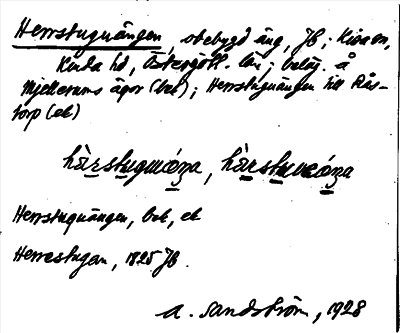 Herrstuguängen, obebygd äng, JB; Kisa sn,
Kinda hd, Östergötl. län; beläg. å
Mjellerums ägor (bok); Herrstuguängen till Rås-
torp (ek)
hàrstuguǽŋa, hàrstuvǽŋa
Herrstuguängen, bok, ek
Herrestugan, 1825 JB.
A. Sandström, 1928